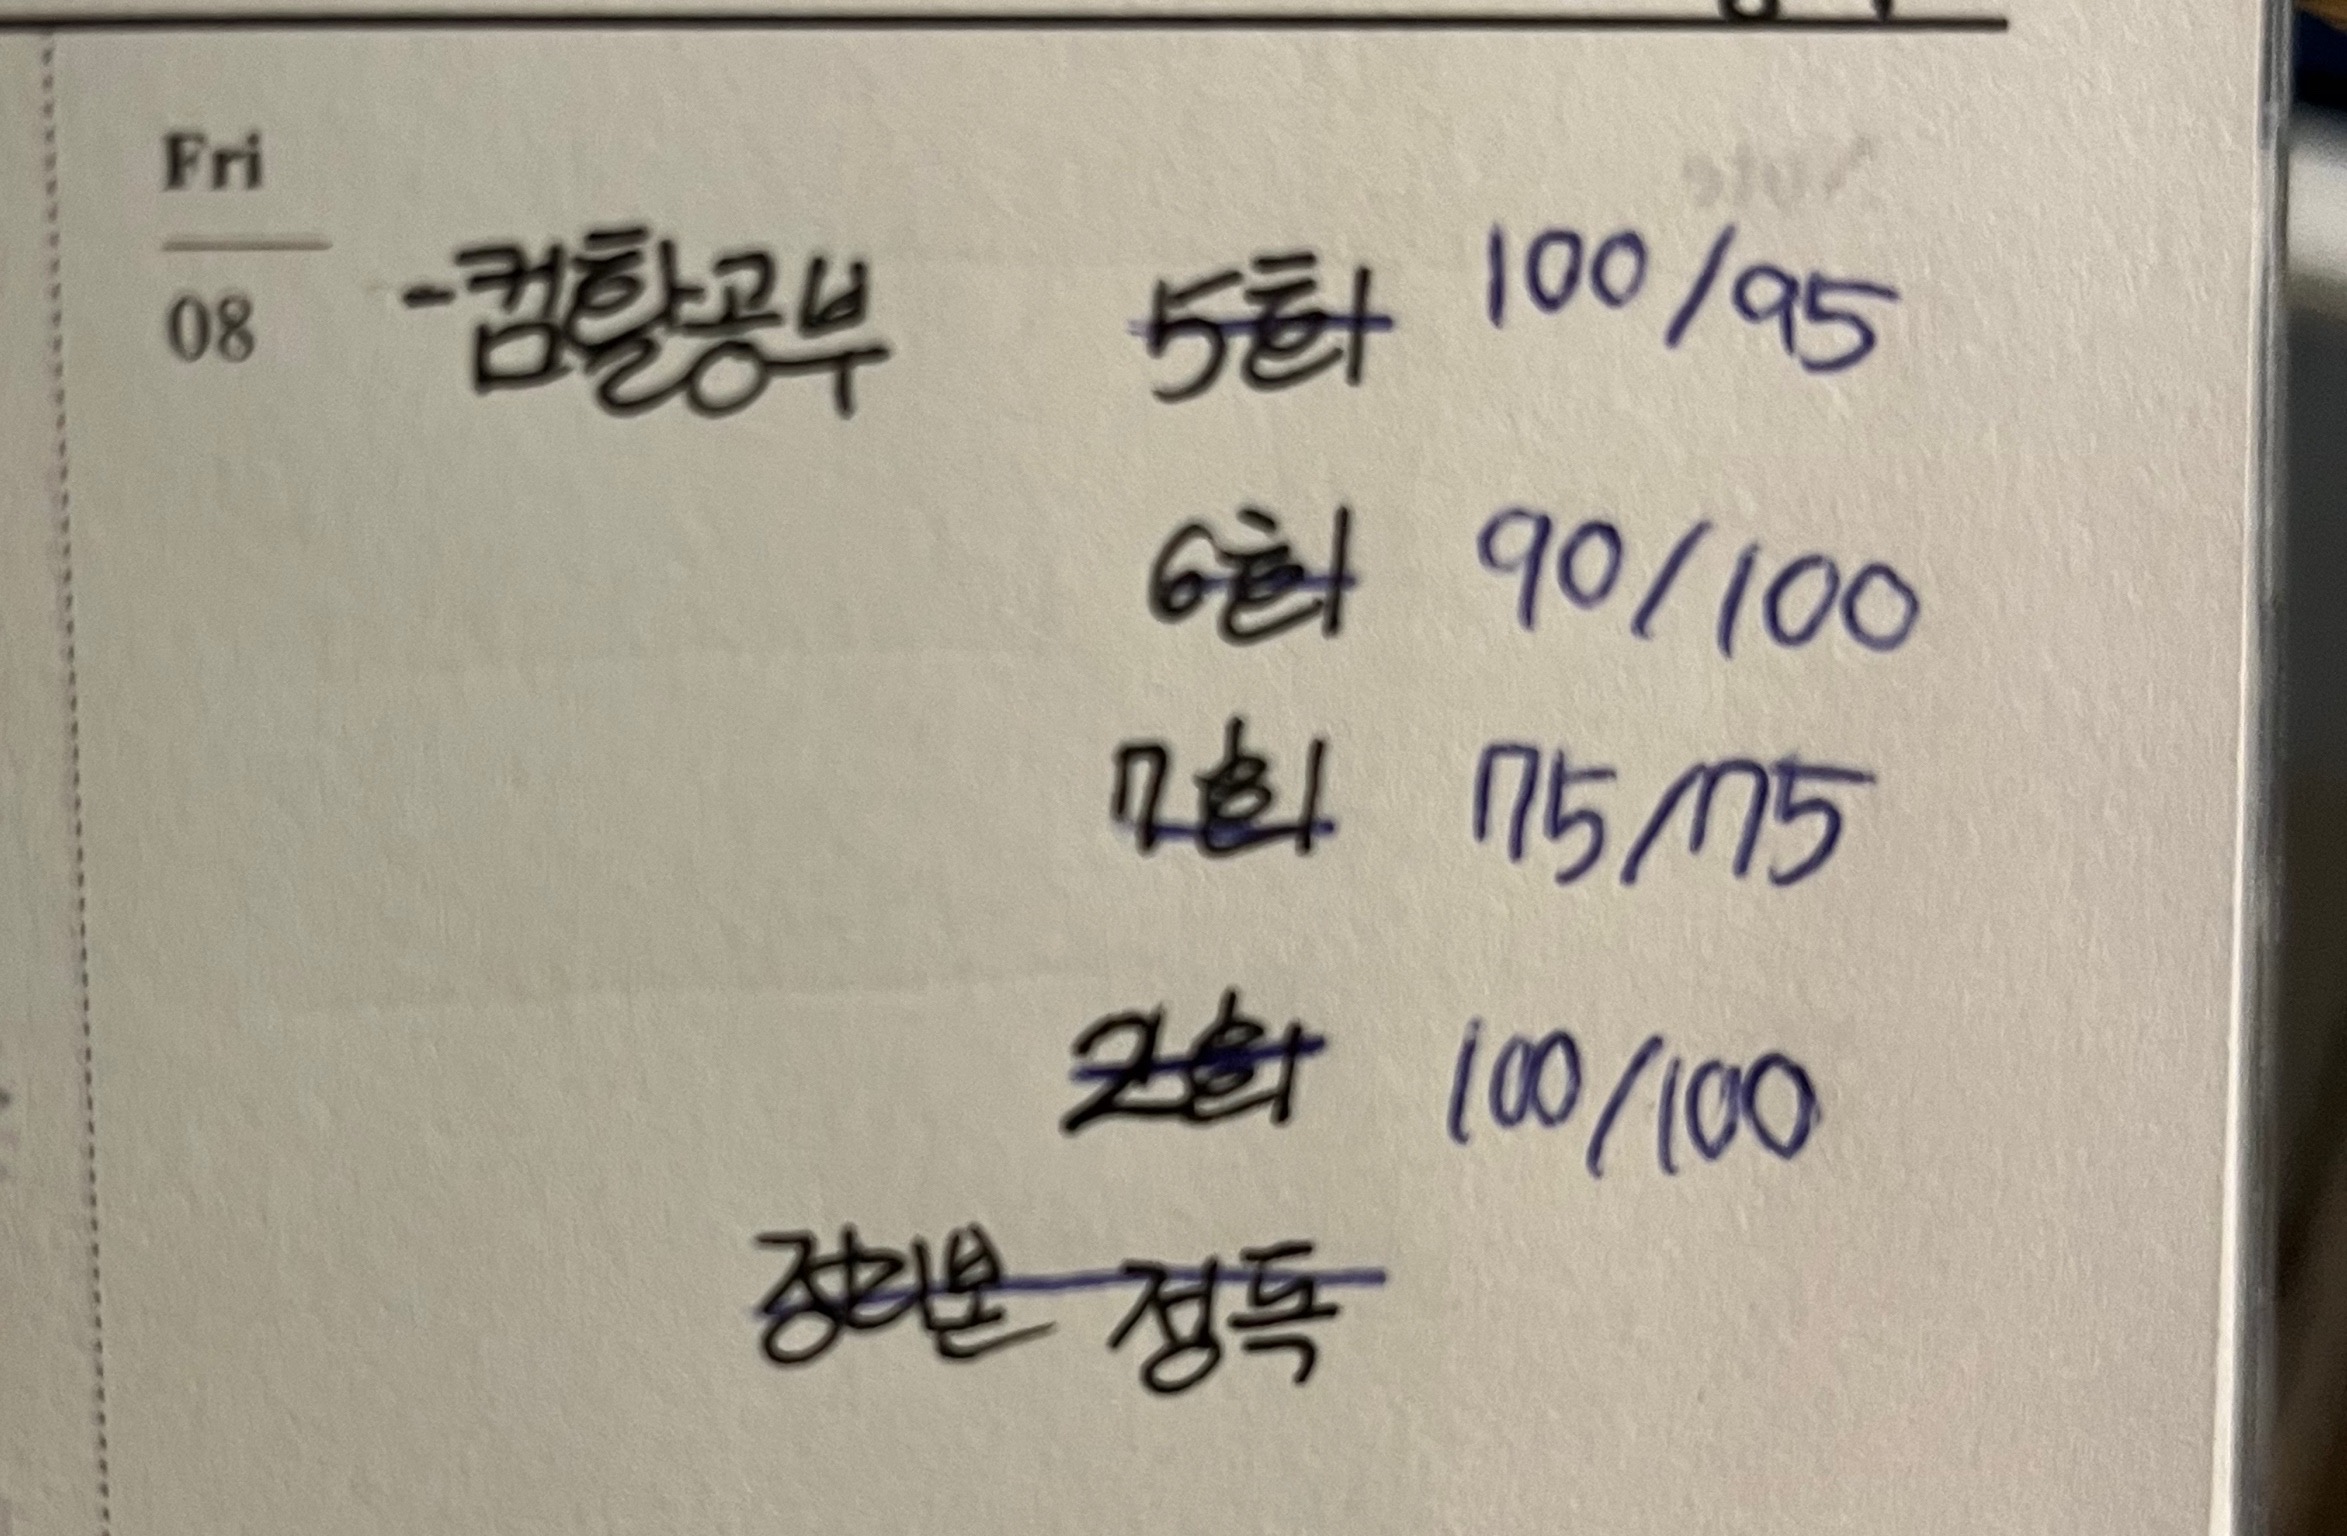 Fri
08
-컴활공부 5회 100/95
6회 90/100
7회 75/75
2회 100/100
정리본 정독